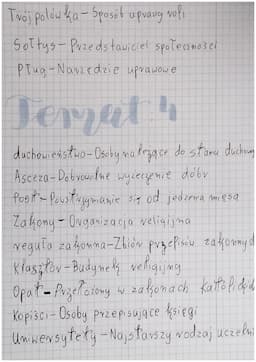 Trójpolówka - Sposób uprawy roli
Sołtys - Przedstawiciel społeczności
Pług - Narzędzie uprawowe
Temat 4
duchowieństwo - Osoby należące do stanu duchow
Asceza - Dobrowolne wyrzeczenie dóbr
Post - Powstrzymanie się od jedzenia mięsa
Zakony - Organizacja religijna
reguła zakonna - Zbiór przepisów zakonnyc
Klasztor - Budynek religijny
Opat - Przełożony w zakonach katolick
Kopiści - Osoby przepisujące księgi
Uniwersytety - Najstarszy rodzaj uczelni